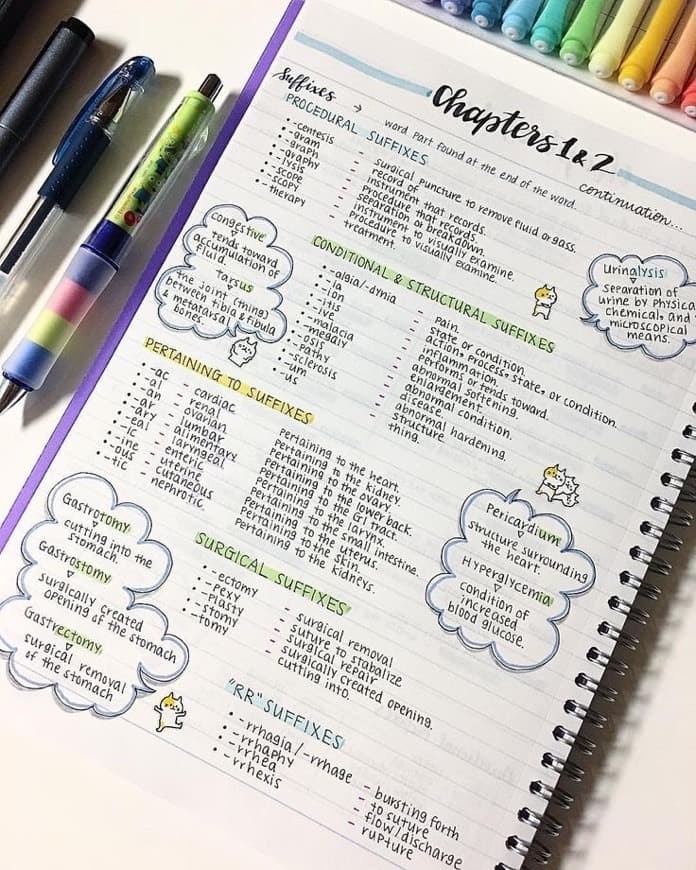 Chapters 1 & 2
continuation...
Suffixes → word part found at the end of the word.
PROCEDURAL SUFFIXES
• -centesis - surgical puncture to remove fluid or gass.
• -gram - record of.
• -graph - instrument that records.
• -graphy - Procedure that records.
• -lysis - separation or breakdown.
• -scope - instrument to visually examine.
• -scopy - procedure to visually examine.
• -therapy - treatment.
Congestive
tends toward
accumulation of
fluid.
Tarsus
the joint (thing)
between tibia & fibula
& metatarsal
bones.
Urinalysis
separation of
urine by physical
chemical, and
microscopical
means.
CONDITIONAL & STRUCTURAL SUFFIXES
• -algia/-dynia - Pain.
• -ia - State or condition.
• -ion - action, process, state, or condition.
• -itis - inflammation.
• -ive - performs or tends toward.
• -malacia - abnormal softening.
• -megaly - enlargement.
• -osis - abnormal condition.
• -pathy - disease.
• -sclerosis - abnormal hardening.
• -um - structure.
• -us - thing.
PERTAINING TO SUFFIXES
• -ac - cardiac Pertaining to the heart.
• -al - renal Pertaining to the kidney.
• -an - ovarian Pertaining to the ovary.
• -ar - lumbar Pertaining to the lower back.
• -ary - alimentary Pertaining to the GI tract.
• -eal - laryngeal Pertaining to the larynx.
• -ic - enteric Pertaining to the small intestine.
• -ine - uterine Pertaining to the uterus.
• -ous - cutaneous Pertaining to the skin.
• -tic - nephrotic Pertaining to the kidneys.
Gastrotomy
cutting into the
stomach.
Gastrostomy
surgically created
opening of the stomach
Gastrectomy
surgical removal
of the stomach
Pericardium
structure surrounding
the heart.
Hyperglycemia
condition of
increased
blood glucose.
SURGICAL SUFFIXES
• -ectomy - surgical removal
• -pexy - suture to stabalize
• -plasty - surgical repair
• -stomy - surgically created opening.
• -tomy - cutting into.
"RR" SUFFIXES
• -rrhagia/-rrhage - bursting forth
• -rrhaphy - to suture
• -rrhea - flow/discharge
• -rrhexis - rupture